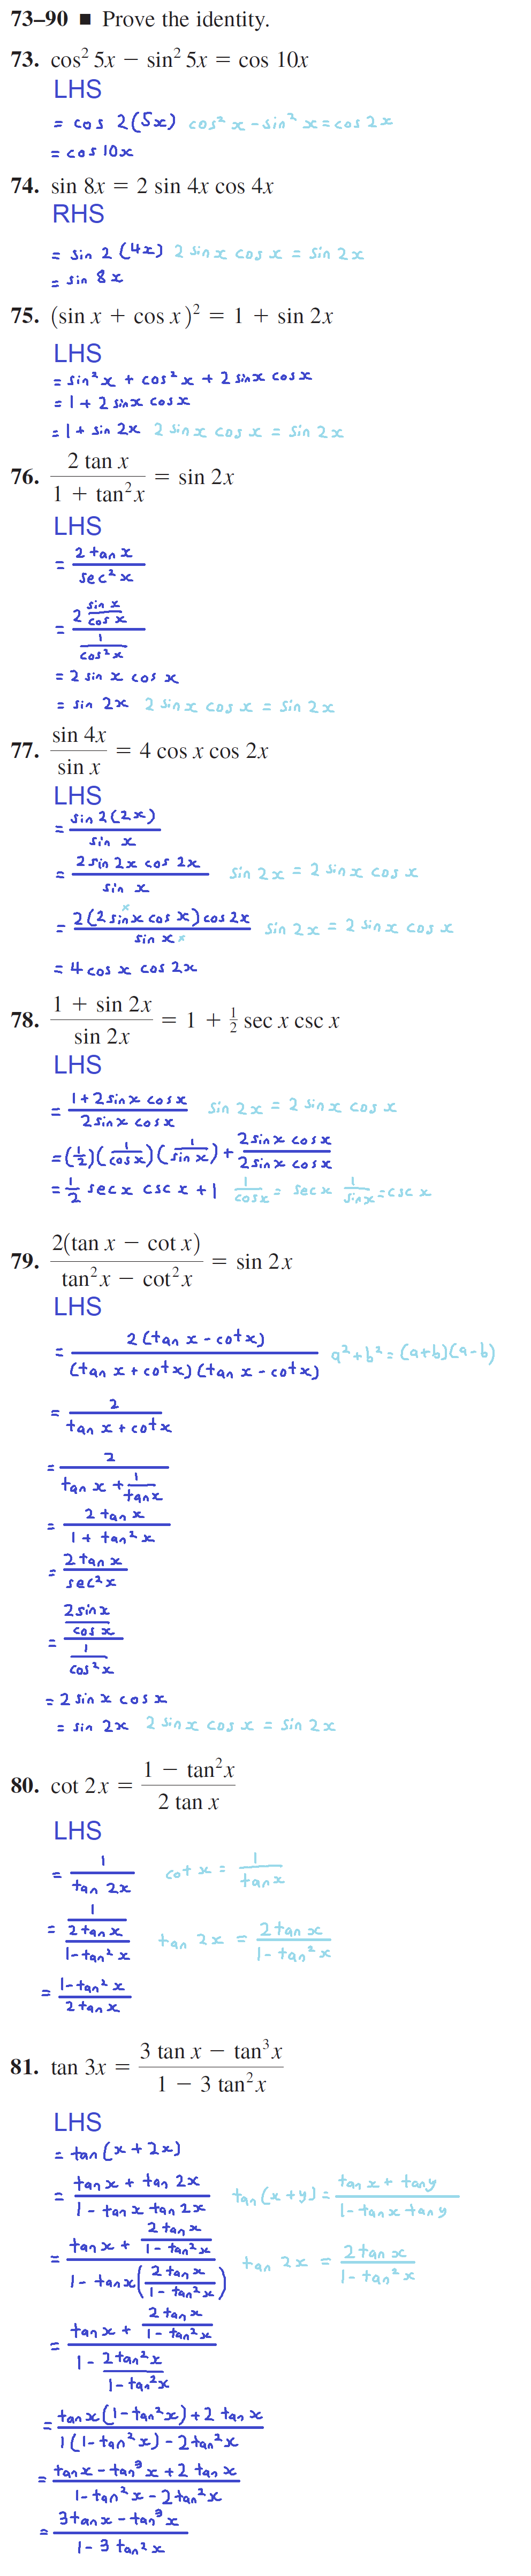 73–90 ■ Prove the identity.
73. cos² 5x − sin² 5x = cos 10x
LHS
= cos 2(5x) cos² x − sin² x = cos 2x
= cos 10x
74. sin 8x = 2 sin 4x cos 4x
RHS
= sin 2 (4x) 2 sin x cos x = sin 2x
= sin 8x
75. (sin x + cos x)² = 1 + sin 2x
LHS
= sin² x + cos² x + 2 sin x cos x
= 1 + 2 sin x cos x
= 1 + sin 2x 2 sin x cos x = sin 2x
76. (2 tan x)/(1 + tan² x) = sin 2x
LHS
= (2 tan x)/(sec² x)
= (2 (sin x)/(cos x))/(1/(cos² x))
= 2 sin x cos x
= sin 2x 2 sin x cos x = sin 2x
77. (sin 4x)/(sin x) = 4 cos x cos 2x
LHS
= (sin 2(2x))/(sin x)
= (2 sin 2x cos 2x)/(sin x) sin 2x = 2 sin x cos x
= (2(2 sin x cos x) cos 2x)/(sin x) sin 2x = 2 sin x cos x
= 4 cos x cos 2x
78. (1 + sin 2x)/(sin 2x) = 1 + ½ sec x csc x
LHS
= (1 + 2 sin x cos x)/(2 sin x cos x) sin 2x = 2 sin x cos x
= (½)(1/(cos x))(1/(sin x)) + (2 sin x cos x)/(2 sin x cos x)
= ½ sec x csc x + 1 1/(cos x) = sec x 1/(sin x) = csc x
79. (2(tan x − cot x))/(tan² x − cot² x) = sin 2x
LHS
= (2 (tan x − cot x))/((tan x + cot x)(tan x − cot x)) a² + b² = (a+b)(a−b)
= 2/(tan x + cot x)
= 2/(tan x + 1/(tan x))
= (2 tan x)/(1 + tan² x)
= (2 tan x)/(sec² x)
= ((2 sin x)/(cos x))/(1/(cos² x))
= 2 sin x cos x
= sin 2x 2 sin x cos x = sin 2x
80. cot 2x = (1 − tan² x)/(2 tan x)
LHS
= 1/(tan 2x) cot x = 1/(tan x)
= 1/((2 tan x)/(1 − tan² x)) tan 2x = (2 tan x)/(1 − tan² x)
= (1 − tan² x)/(2 tan x)
81. tan 3x = (3 tan x − tan³ x)/(1 − 3 tan² x)
LHS
= tan (x + 2x)
= (tan x + tan 2x)/(1 − tan x tan 2x) tan (x + y) = (tan x + tan y)/(1 − tan x tan y)
= (tan x + (2 tan x)/(1 − tan² x))/(1 − tan x((2 tan x)/(1 − tan² x))) tan 2x = (2 tan x)/(1 − tan² x)
= (tan x + (2 tan x)/(1 − tan² x))/(1 − (2 tan² x)/(1 − tan² x))
= (tan x(1 − tan² x) + 2 tan x)/(1(1 − tan² x) − 2 tan² x)
= (tan x − tan³ x + 2 tan x)/(1 − tan² x − 2 tan² x)
= (3 tan x − tan³ x)/(1 − 3 tan² x)